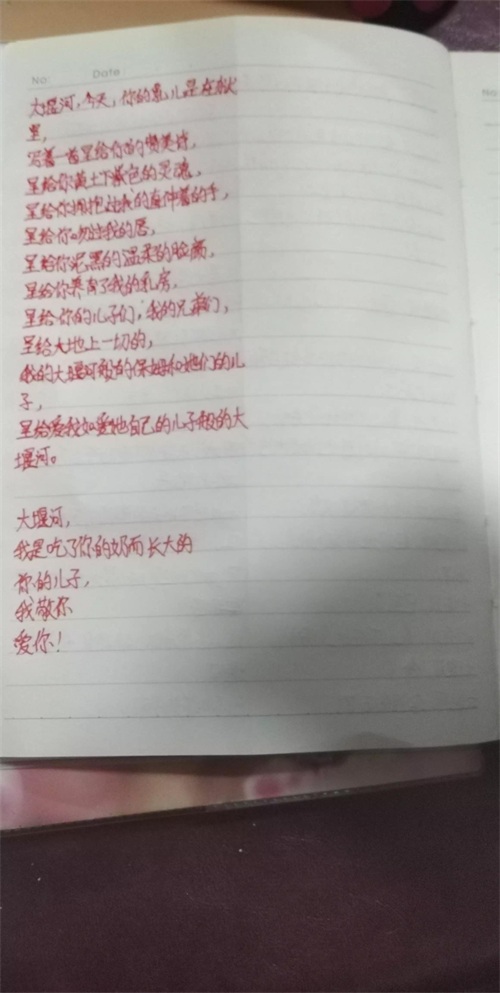 No:   Date
大堰河，今天，你的乳儿是在狱
里，
写着一首呈给你的赞美诗，
呈给你黄土下紫色的灵魂，
呈给你拥抱过我的直伸着的手，
呈给你吻过我的唇，
呈给你泥黑的温柔的脸颜，
呈给你养育了我的乳房，
呈给你的儿子们，我的兄弟们，
呈给大地上一切的，
我的大堰河般的保姆和她们的儿
子，
呈给爱我如爱她自己的儿子般的大
堰河。
大堰河，
我是吃了你的奶而长大的
你的儿子，
我敬你
爱你！
No